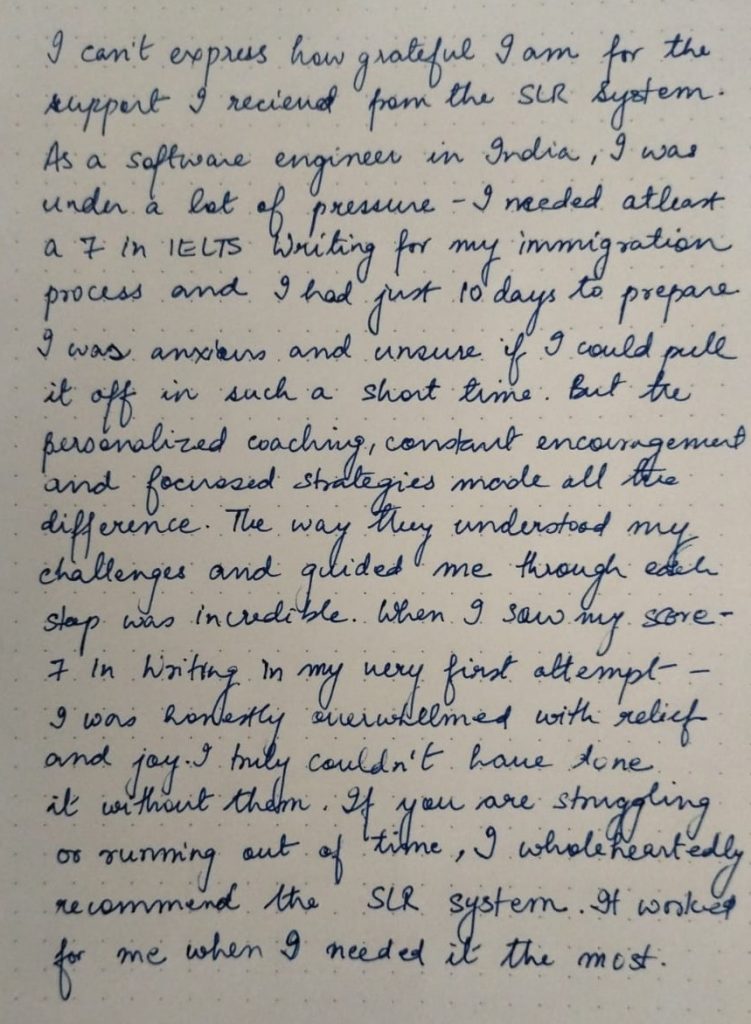 I can't express how grateful I am for the
support I recieved from the SLR System.
As a software engineer in India, I was
under a lot of pressure - I needed atleast
a 7 in IELTS Writing for my immigration
process and I had just 10 days to prepare
I was anxious and unsure if I could pull
it off in such a short time. But the
personalized coaching, constant encouragement
and focussed strategies made all the
difference. The way they understood my
challenges and guided me through each
step was incredible. When I saw my score -
7 in Writing in my very first attempt -
I was honestly overwhelmed with relief
and joy. I truly couldn't have done
it without them. If you are struggling
or running out of time, I wholeheartedly
recommend the SLR system. It worked
for me when I needed it the most.